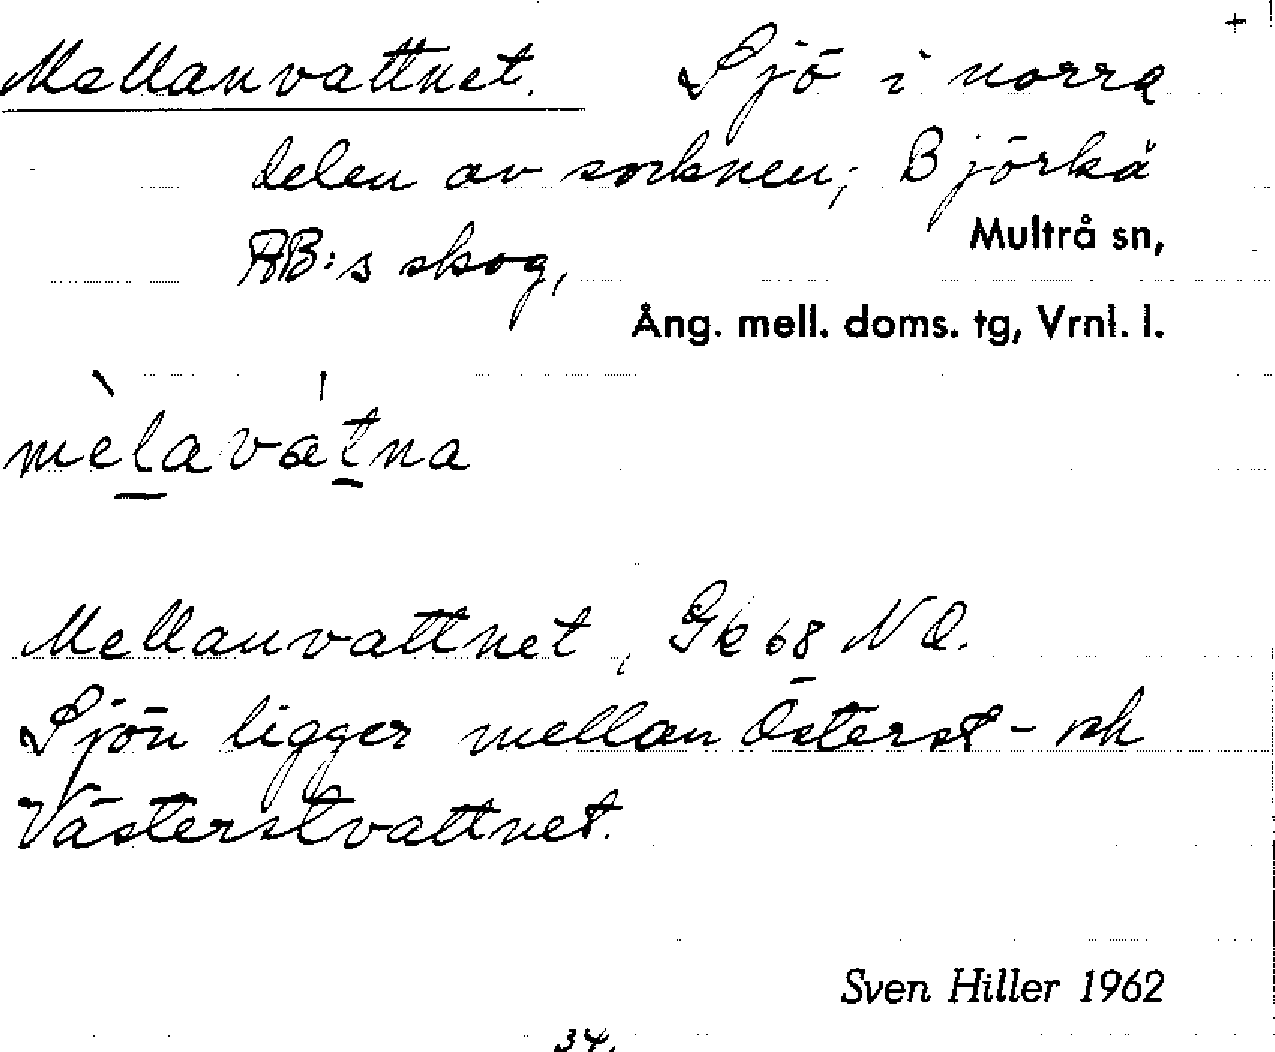 +
Mellanvattnet. Sjö i norra
delen av socknen; Björkå
AB:s skog,
Multrå sn,
Ång. mell. doms. tg, Vrnl. l.
mèlavátna
Mellanvattnet, Gk 68 NO.
Sjön ligger mellan Österst- och
Västerstvattnet.
Sven Hiller 1962
34.